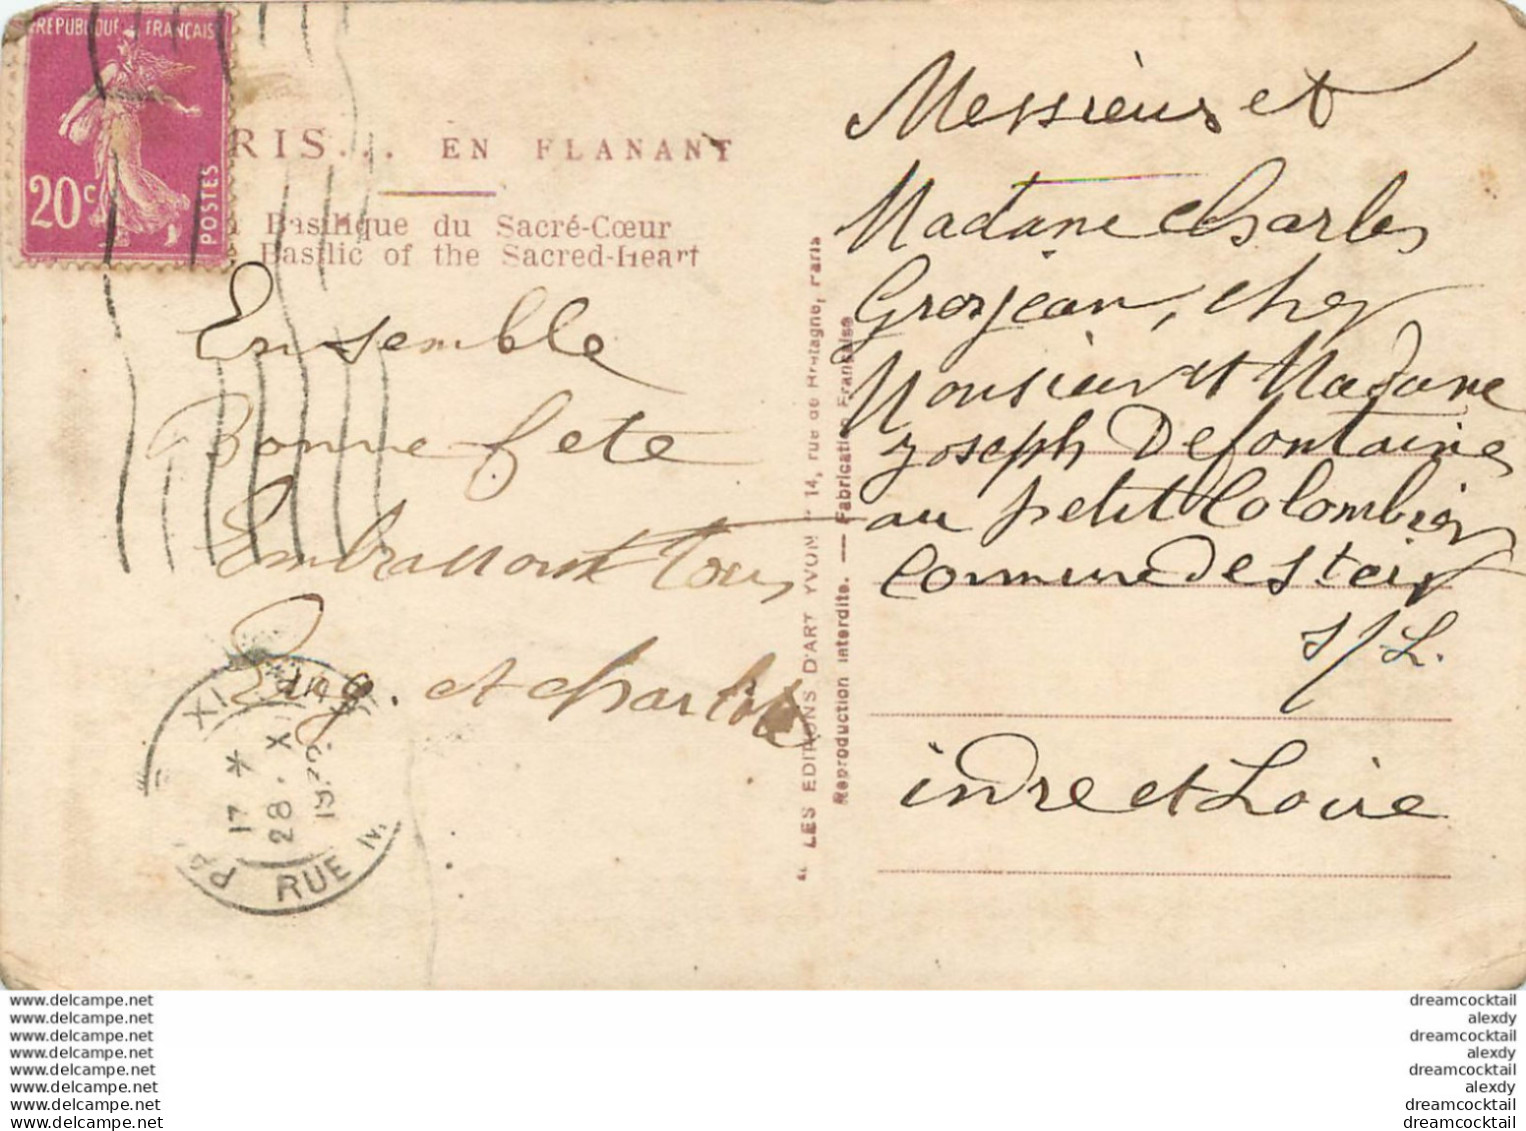 REPUBLIQUE FRANÇAISE
20c
POSTES
RIS... EN FLANANT
Basilique du Sacré-Cœur
Basilic of the Sacred-Heart
Ensemble
Bonne fete
Embrassont tous
et charlot
XI
17 *
28 . X
RUE M
" LES EDITIONS D'ART YVON " 14, rue de Bretagne, Paris
Reproduction interdite. — Fabrication Française
Messieurs et
Madame Charles
Grosjean, chez
Monsieur et Madame
Joseph Defontaine
au petit Colombier
Commune de
S/L.
indre et Loire
www.delcampe.net
www.delcampe.net
www.delcampe.net
www.delcampe.net
www.delcampe.net
www.delcampe.net
www.delcampe.net
www.delcampe.net
dreamcocktail
alexdy
dreamcocktail
alexdy
dreamcocktail
alexdy
dreamcocktail
dreamcocktail